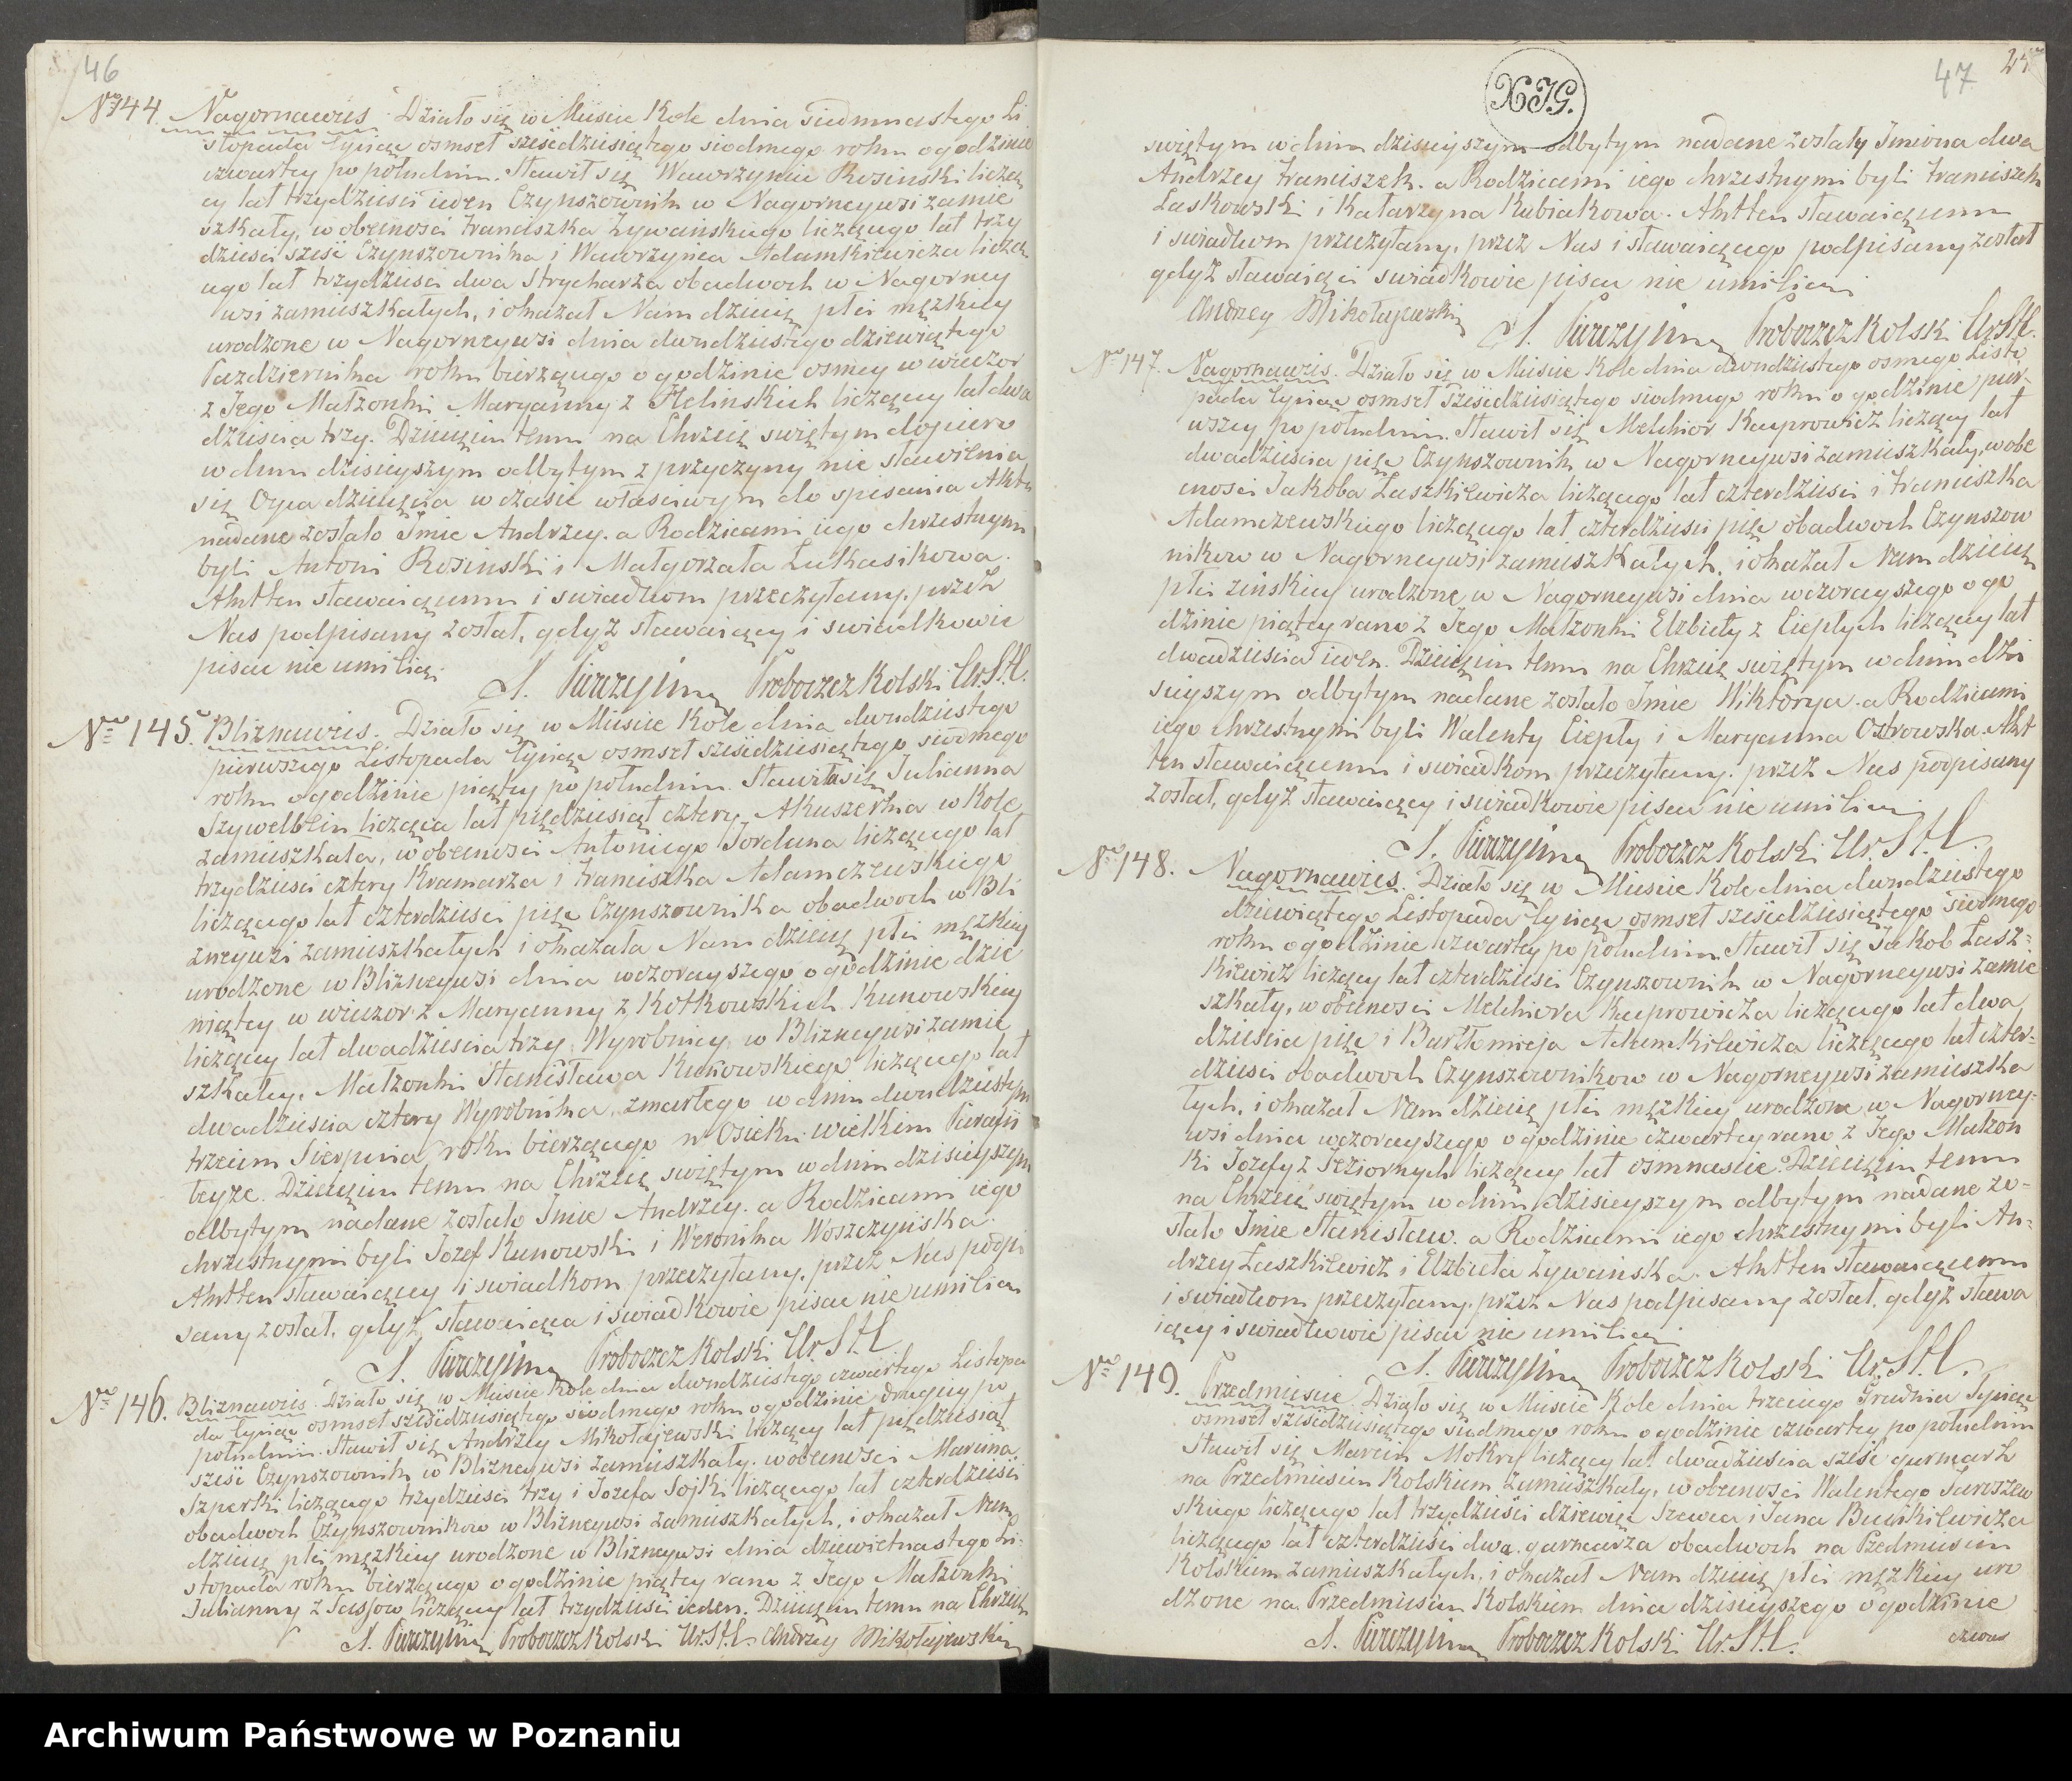 46
No 144. Nagornawies. Działo się w Mieście Kole dnia siedmnastego Li
stopada tysiąc osmset sześćdziesiątego siodmego roku o godzinie
czwartey po południu. Stawił się Wawrzyniec Rosinski licząc
cy lat trzydzieści ieden Czynszownik w Nagorneywsi zamie
szkały, w obecności Franciszka Zywańskiego liczącego lat trzy
dzieści sześć Czynszownika i Wawrzyńca Adamkiewicza liczą
cego lat trzydzieści dwa Strycharza obudwoch w Nagorney
wsi zamieszkałych, i okazał Nam dziecię płci męzkiey
urodzone w Nagorneywsi dnia dwudziestego dziewiątego
Pazdziernika roku bierzącego o godzinie osmey w wieczor
z Jego Małżonki Maryanny z Helinskich liczącey lat dwa
dzieścia trzy. Dziecięciu temu na Chrzcie świętym dopiero
w dniu dzisieyszym odbytym z przyczyny nie stawienia
się Oyca dziecięcia w czasie właściwym do spisania Aktu
nadane zostało Imie Andrzey. a Rodzicami iego chrzestnymi
byli Antoni Rosinski i Małgorzata Łukasikowa.
Akt ten stawaiącemu i swiadkom przeczytany, przez
Nas podpisany został, gdyż stawaiący i swiadkowie
pisać nie umieią.
Proboszcz Kolski Ur. St. C.
No 145. Bliznawies. Działo się w Mieście Kole dnia dwudziestego
pierwszego Listopada tysiąc osmset sześćdziesiątego siodmego
roku o godzinie piątey po południu. Stawiła się Julianna
Szywelbein licząca lat pięćdziesiąt cztery Akuszerka w Kole
zamieszkała, w obecności Antoniego Jordana liczącego lat
trzydzieści cztery Kramarza i Franciszka Adamczewskiego
liczącego lat czterdzieści pięć Czynszownika obudwoch w Bli
zneywsi zamieszkałych i okazała Nam dziecię płci męzkiey
urodzone w Blizneywsi dnia wczorayszego o godzinie dzie
wiątey w wieczor z Maryanny z Kotkowskich Kunowskiey
liczącey lat dwadzieścia trzy Wyrobnicy w Blizneywsi zamie
szkałey, Małżonki Stanisława Kunowskiego liczącego lat
dwadzieścia cztery Wyrobnika, zmarłego w dniu dwudziestym
trzecim Sierpnia roku bierzącego w Osieku wielkim Parafii
teyże. Dziecięciu temu na Chrzcie świętym w dniu dzisieyszym
odbytym nadane zostało Imie Andrzey. a Rodzicami iego
chrzestnymi byli Jozef Kunowski i Weronika Woszczyńska.
Akt ten stawaiącey i swiadkom przeczytany, przez Nas podpi
sany został, gdyż stawaiąca i swiadkowie pisać nie umieią
Proboszcz Kolski Ur. St. C.
No 146. Bliznawies Działo się w Mieście Kole dnia dwudziestego czwartego Listopa
da tysiąc osmset sześćdziesiątego siodmego roku o godzinie drugiey po
południu. Stawił się Andrzey Mikołajewski liczący lat pięćdziesiąt
sześć Czynszownik w Blizneywsi zamieszkały, w obecności Marcina
Szperki liczącego trzydzieści trzy i Jozefa Sojki liczącego lat czterdzieści
obudwoch Czynszownikow w Blizneywsi zamieszkałych, i okazał Nam
dziecię płci męzkiey urodzone w Blizneywsi dnia dziewietnastego Li-
stopada roku bierzącego o godzinie piątey rano z Jego Małżonki
Julianny z Sassow liczącey lat trzydzieści ieden. Dziecięciu temu na Chrzcie
Proboszcz Kolski Ur. St. C. Andrzey Mikołajewski
47
XJG.
świętym w dniu dzisieyszym odbytym nadane zostały Imiona dwa
Andrzey Franciszek. a Rodzicami iego chrzestnymi byli Franciszek
Laskowski i Katarzyna Kubiakowa. Akt ten stawaiącemu
i swiadkom przeczytany, przez Nas i stawaiącego podpisany został
gdyż stawaiący swiadkowie pisać nie umieią
Andrzey Mikołajewski Proboszcz Kolski Ur. St. C.
No 147. Nagornawies. Działo się w Mieście Kole dnia dwudziestego osmego Listo
pada tysiąc osmset sześćdziesiątego siodmego roku o godzinie pier-
wszey po południu. Stawił się Melchior Kacprowicz liczący lat
dwadzieścia pięć Czynszownik w Nagorneywsi zamieszkały, w obe
cności Jakoba Laszkiewicza liczącego lat czterdzieści i Franciszka
Adamczewskiego liczącego lat czterdzieści pięć obudwoch Czynszow
nikow w Nagorneywsi zamieszkałych, i okazał Nam dziecię
płci żeńskiey urodzone w Nagorneywsi dnia wczorayszego o go
dzinie piątey rano z Jego Małżonki Elżbiety z Ciepłych liczącey lat
dwadzieścia ieden. Dziecięciu temu na Chrzcie świętym w dniu dzi
sieyszym odbytym nadane zostało Imie Wiktorya. a Rodzicami
iego chrzestnymi byli Walenty Ciepły i Maryanna Ostrowska. Akt
ten stawaiącemu i swiadkom przeczytany, przez Nas podpisany
został, gdyż stawaiący i swiadkowie pisać nie umieią.
Proboszcz Kolski Ur. St. C.
No 148. Nagornawies. Działo się w Mieście Kole dnia dwudziestego
dziewiątego Listopada tysiąc osmset sześćdziesiątego siodmego
roku o godzinie czwartey po południu Stawił się Jakob Łasz-
kiewicz liczący lat czterdzieści Czynszownik w Nagorneywsi zamie
szkały, w obecności Melchiora Kacprowicza liczącego lat dwa
dzieścia pięć i Bartłomieja Adamkiewicza liczącego lat czter-
dzieści obudwoch Czynszownikow w Nagorneywsi zamieszka
łych, i okazał Nam dziecię płci męzkiey urodzone w Nagorney-
wsi dnia wczorayszego o godzinie czwartey rano z Jego Małżon
ki Jozefy z Jeziornych liczącey lat osmnaście. Dziecięciu temu
na Chrzcie świętym w dniu dzisieyszym odbytym nadane zo-
stało Imie Stanisław. a Rodzicami iego chrzestnymi byli An-
drzey Łaszkiewicz i Elżbieta Zywańska. Akt ten stawaiącemu
i swiadkom przeczytany, przez Nas podpisany został, gdyż stawa
iący i swiadkowie pisać nie umieią
Proboszcz Kolski Ur. St. C.
No 149. Przedmieście Działo się w Mieście Kole dnia trzeciego Grudnia tysiąc
osmset sześćdziesiątego siodmego roku o godzinie czwartey po południu
Stawił się Marcin Mokry liczący lat dwadzieścia sześć garnearz
na Przedmieściu Kolskiem zamieszkały, w obecności Walentego Jaroszew
skiego liczącego lat trzydzieści dziewięć Szewca i Jana
liczącego lat czterdzieści dwa garnearza obudwoch na Przedmieściu
Kolskiem zamieszkałych, i okazał Nam dziecię płci męzkiey uro
dzone na Przedmieściu Kolskiem dnia dzisieyszego o godzinie
Proboszcz Kolski Ur. St. C.
Archiwum Państwowe w Poznaniu